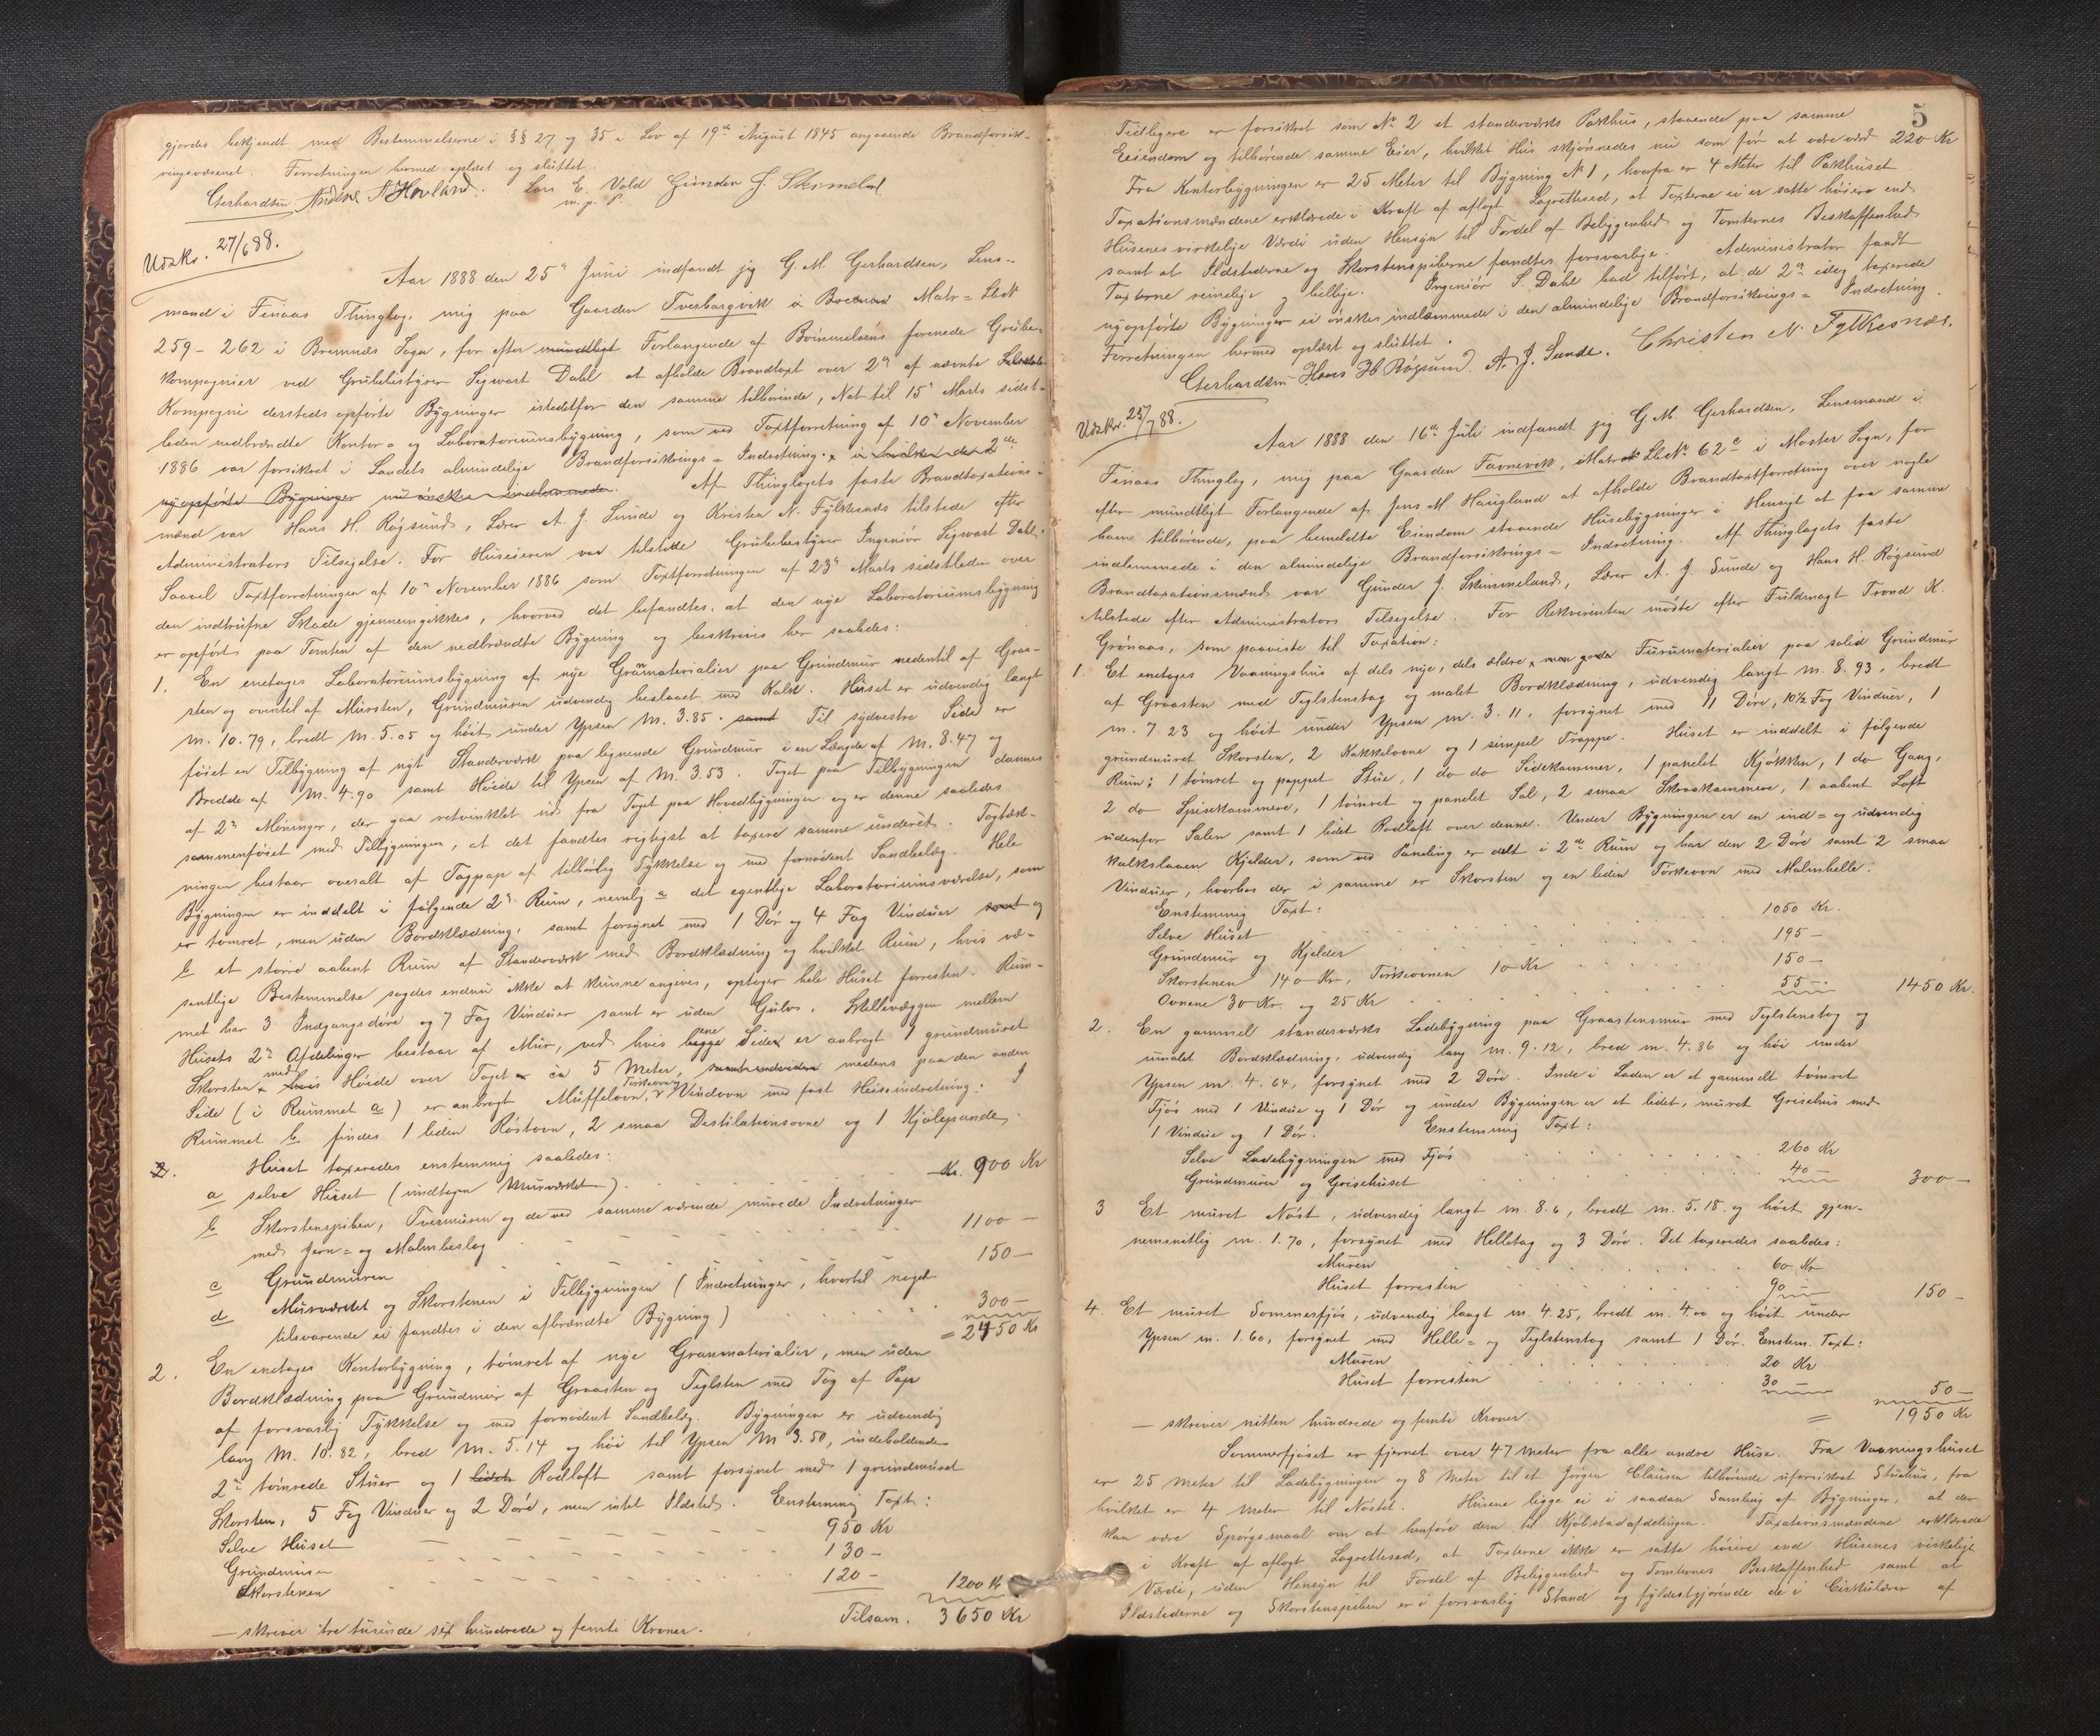 gjordes bekjendt med Bestemmelserne i §§ 27 og 35 i Lov af 19de August 1845 angaaende Brandforsik-
ringsvæsenet. Forretningen hermed oplæst og sluttet.
Gerhardsen Anders A Hovland. Lars E. Vold Gunder J. Skimeland
m. p. P.
Udskr. 27/6 88.
Aar 1888 den 25de Juni indfandt jeg G. M. Gerhardsen, Lens-
mand i Finaas Thinglag, mig paa Gaarden Tverborgvik Matr = LbN
259 - 262 i Bremnæs Sogn, for efter mundtligt Forlangende af Bømmeløens forenede Grube-
kompagnier ved Grubebestyrer Segwart Dahl at afholde Brandtaxt over 2de af nævnte
Kompagni dersteds opførte Bygninger istedetfor den samme tilhørende, Nat til 15de Marts sidst-
leden nedbrændte Kontor- og Laboratoriumsbygning, som ved Taxtforretning af 10de November
1886 var forsikret i Landets almindelige Brandforsikrings = Indretning. i hvilken de 2de
nyopførte Bygninger nu ønskes indlemmede. Af Thinglagets faste Brandtaxations-
mænd var Hans H. Røgsund, Lærer A. J. Sunde og Kristen N. Fylkesnæs tilstede efter
Administrators Tilsigelse. For Huseieren var tilstede Grubebestyrer Ingeniør Segwart Dahl.
Saavel Taxtforretningen af 10de November 1886 som Taxtforretningen af 23de Marts sidstleden over
den indtrufne Skade gjennemgikkes, hvorved det befandtes, at den nye Laboratoriumsbygning
er opført paa Tomten af den nedbrændte Bygning og beskrives her saaledes:
1. En enetages Laboratoriumsbygning af nye Granmaterialier paa Grundmur nedentil af Graa-
sten og oventil af Mursten, Grundmuren udvendig beslaaet med Kalk. Huset er udvendig langt
M. 10.79, bredt M. 5.05 og høit under Ypsen M. 3.85. samt Til sydvestre Side er
føiet en Tilbygning af nyt Standerværk paa lignende Grundmur i en Længde af M. 8.47 og
Bredde af M. 4.90 samt Høide til Ypsen af M. 3.53. Taget paa Tilbygningen dannes
af 2de Møninger, der gaa retvinklet ud fra Taget paa Hovedbygningen og er denne saaledes
sammenføiet med Tilbygningen, at det fandtes rigtigst at taxere samme underet. Tagtæk-
ningen bestaar overalt af Tagpap af tilbørlig Tykkelse og med fornødent Sandbelæg. Hele
Bygningen er inddelt i følgende 2de Rum, nemlig a det egentlige Laboratoriumsværelse, som
er tømret, men uden Bordklædning, samt forsynet med 1 Dør og 4 Fag Vinduer samt og
b et større aabent Rum af Standerværk med Bordklædning og hvilket Rum, hvis væ-
sentlige Bestemmelse sagdes endnu ikke at kunne angives, optager hele Huset forresten. Rum-
met har 3 Indgangsdøre og 7 Fag Vinduer samt er uden Gulv. Skillevæggen mellem
Husets 2de Afdelinger bestaar af Mur, ved hvis begge ene Sider er anbragt 1 grundmuret
Skorsten med hvis Høide over Taget ca 5 Meter, medens paa den anden
Side (i Rummet a) er anbragt Muffelovn, Tørkeovn, Vindovn med fast Heiseindretning. I
Rummet b findes 1 liden Røstovn, 2 smaa Destilationsovne og 1 Kjølepande.
2. Huset taxeredes enstemmig saaledes:
a selve Huset (undtagen Murværket) . Kr. 900 Kr
b Skorstenspiben, Tvermuren og de ved samme værende murede Indretninger
med Jern = og Malmbeslag 1100 —
c Grundmuren 150 —
d Murværket og Skorstenen i Tilbygningen (Indretninger, hvortil noget
tilsvarende ei fandtes i den afbrændte Bygning) 300 —
= 2450 Kr
2. En enetages Kontorbygning, tømret af nye Granmaterialier, men uden
Bordklædning paa Grundmur af Graasten og Teglsten med Tag af Pap
af forsvarlig Tykkelse og med fornødent Sandbelæg. Bygningen er udvendig
lang M. 10.82, bred M. 5.14 og høi til Ypsen M 3.50, indeholdende
2de tømrede Stuer og 1 lidet Rodloft samt forsynet med 1 grundmuret
Skorsten, 5 Fag Vinduer og 2 Døre, men intet Ildsted. Enstemmig Taxt:
Selve Huset 950 Kr
Grundmuren 130 —
Skorstenen 120 — 1200 Kr
Tilsam. 3650 Kr
— skriver tre tusinde sex hundrede og femti Kroner.
5
Tidligere er forsikret som No 2 et standerværks Pakhus, staaende paa samme
Eiendom og tilhørende samme Eier, hvilket Hus skjønnedes nu som før at være værd 220 Kr
Fra Kontorbygningen er 25 Meter til Bygning No 1, hvorfra er 4 Meter til Pakhuset
Taxationsmændene erklærede i Kraft af aflagt Lagrettesed, at Taxterne ei er satte høiere end
Husenes virkelige Værdi uden Hensyn til Fordel af Beliggenhed og Tomternes Beskaffenhed
samt at Ildstederne og Skorstenspiberne fandtes forsvarlige. Administrator fandt
Taxterne rimelige og billige. Ingeniør S. Dahl bad tilført, at de 2de idag taxerede
nyopførte Bygninger ei ønskes indlemmede i den almindelige Brandforsikrings = Indretning.
Forretningen hermed oplæst og sluttet.
Gerhardsen Hans H Røgsund. A. J. Sunde. Christen N. Fylkesnæs.
Udskr. 25/7 88.
Aar 1888 den 16de Juli indfandt jeg G. M. Gerhardsen, Lensmand i
Finaas Thinglag, mig paa Gaarden Favnevik, Matr LbNo 62c i Moster Sogn, for
efter mundtligt Forlangende af Jens M. Haugland at afholde Brandtaxtforretning over nogle
ham tilhørende, paa bemeldte Eiendom staaende Husebygninger i Hensigt at faa samme
indlemmede i den almindelige Brandforsikrings = Indretning. Af Thinglagets faste
Brandtaxationsmænd var Gunder J. Skimmeland, Lærer A. J. Sunde og Hans H. Røgsund
tilstede efter Administrators Tilsigelse. For Rekvirenten mødte efter Fuldmagt Trond K.
Grønaas, som paaviste til Taxation:
1. Et enetages Vaaningshus af dels nye, dels ældre, men gode Furumaterialier paa solid Grundmur
af Graasten med Teglstenstag og malet Bordklædning, udvendig langt M. 8.93, bredt
m. 7.23 og høit under Ypsen m. 3.11, forsynet med 11 Døre, 10½ Fag Vinduer, 1
grundmuret Skorsten, 2 Kakkelovne og 1 simpel Trappe. Huset er inddelt i følgende
Rum: 1 tømret og pappet Stue, 1 do do Sidekammer, 1 panelet Kjøkken, 1 do Gang,
2 do Spisekammere, 1 tømret og panelet Sal, 2 smaa Skraakammere, 1 aabent Loft
udenfor Salen samt 1 lidet Rodloft over denne. Under Bygningen er en ind = og udvendig
kalkslaaen Kjelder, som ved Paneling er delt i 2de Rum og har den 2 Døre samt 2 smaa
Vinduer, hvorhos der i samme er Skorsten og en liden Tørkeovn med Malmhelle:
Enstemmig Taxt:
Selve Huset 1050 Kr.
Grundmur og Kjelder 195 —
Skorstenen 140 Kr, Tørkeovnen 10 Kr 150 —
Ovnene 30 Kr. og 25 Kr 55 — 1450 Kr.
2. En gammel standerværks Ladebygning paa Graastensmur med Teglstenstag og
umalet Bordklædning, udvendig lang m. 9.12, bred m. 4.86 og høi under
Ypsen m. 4.64, forsynet med 2 Døre. Inde i Laden er et gammelt tømret
Fjøs med 1 Vindue og 1 Dør og under Bygningen er et lidet, muret Grisehus med
1 Vindue og 1 Dør. Enstemmig Taxt:
Selve Ladebygningen med Fjøs 260 Kr
Grundmuren og Grisehuset 40 — 300 —
3 Et muret Nøst, udvendig langt m. 8.6, bredt m. 5.18 og høit gjen-
nemsnitlig m. 1.70, forsynet med Helletag og 3 Døre. Det taxeredes saaledes:
Muren 60 Kr
Huset forresten 90 — 150 —
4. Et muret Sommerfjøs, udvendig langt m. 4.25, bredt m. 4.00 og høit under
Ypsen m. 1.60, forsynet med Helle = og Teglstenstag samt 1 Dør. Enstem. Taxt:
Muren 20 Kr
Huset forresten 30 — 50 —
— skriver nitten hundrede og femti Kroner = 1950 Kr
Sommerfjøset er fjernet over 47 Meter fra alle andre Huse. Fra Vaaningshuset
er 25 Meter til Ladebygningen og 8 Meter til et Jørgen Clausen tilhørende uforsikret Stuehus, fra
hvilket er 4 Meter til Nøstet. Husene ligge ei i saadan Samling af Bygninger, at der
kan være Spørgsmaal om at henføre dem til Kjøbstadafdelingen. Taxationsmændene erklærede
i Kraft af aflagt Lagrettesed, at Taxterne ikke er satte høiere end Husenes virkelige
Værdi, uden Hensyn til Fordel af Beliggenhed og Tomternes Beskaffenhed samt at
Ildstederne og Skorstenspiben er i forsvarlig Stand og fyldestgjørende de i Cirkulærer af